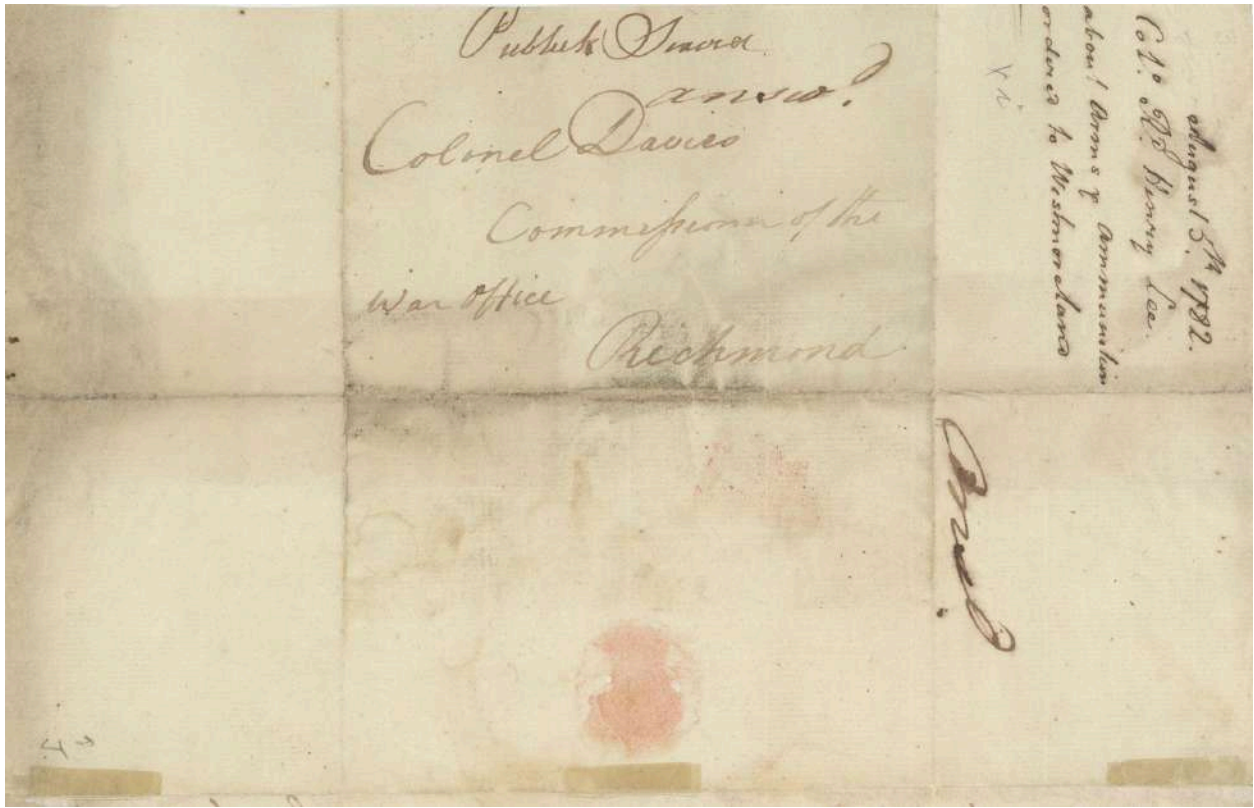 Publick Service
answd.
Colonel Davies
Commissioner of the
War Office
Richmond
August 5th 1782.
Colo. Rd. Henry Lee.
about Arms & Ammunition
ordered to Westmoreland